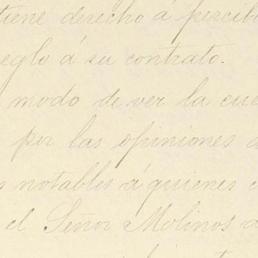 tiene derecho á percib
eglo á su contrato.
modo de ver la cue
por las opiniones d
s notables á quienes c
el Señor Molinos a